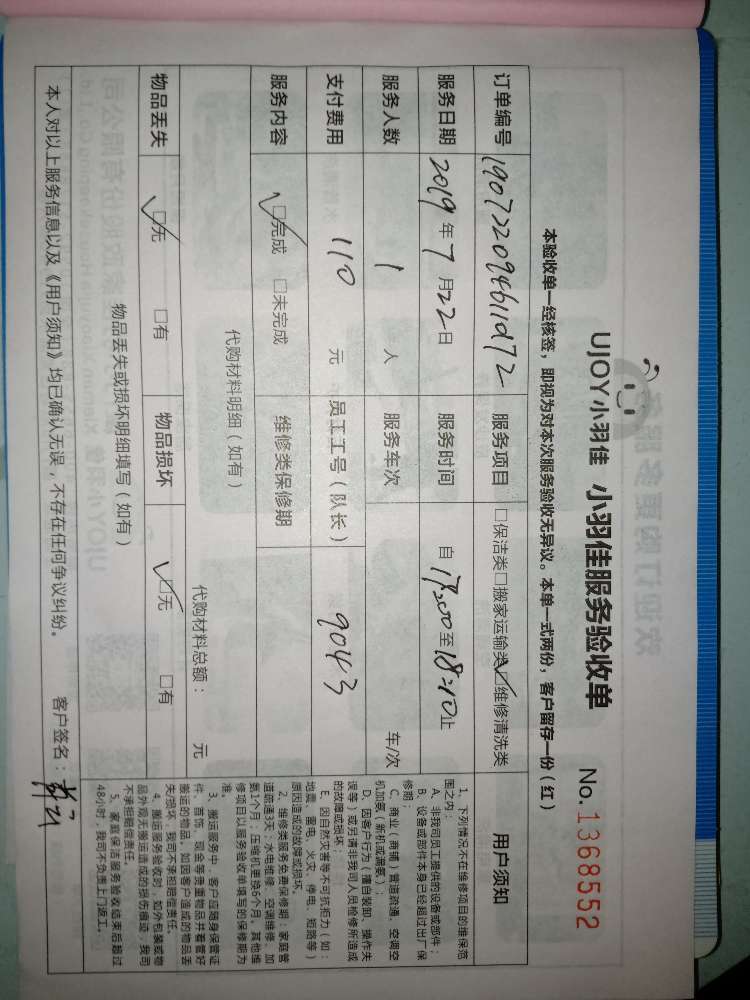 UJOY小羽佳 小羽佳服务验收单 No.1368552
本验收单一经核签，即视为对本次服务验收无异议。本单一式两份，客户留存一份（红）
订单编号 服务项目 □保洁类□搬家运输类☑维修清洗类
服务日期 2019年7月22日 服务时间 至18:10止
服务人数 1人 服务车次 车/次
支付费用 110元 员工工号（队长） 9043
服务内容 ☑完成 □未完成 维修类保修期
代购材料明细（如有） 代购材料总额： 元
物品丢失 ☑无 □有 物品损坏 ☑无 □有
物品丢失或损坏明细填写（如有）
本人对以上服务信息以及《用户须知》均已确认无误，不存在任何争议纠纷。 客户签名：
用户须知
1、下列情况不在维修项目的维保范
围之内：
A、非我司员工提供的设备或部件；
B、设备或部件本身已经超过出厂保
修期；
C、商业（商铺）管道疏通、空调空
机加氨（新机或漏氨）；
D、因客户行为（擅自装卸、操作失
误等）或另请非我司人员检修所造成
的故障或损坏
E、因自然灾害等不可抗拒力（如：
地震、雷电、火灾、停电、短路等）
原因造成的故障或损坏。
2、维修类服务免费保修期：家庭管
道疏通3天；水电维修、空调维修、加
氨1个月；压缩机更换6个月。其他维
修项目以服务验收单填写的保修期为
准
3、搬运服务中，客户应随身保管证
件、首饰、现金等贵重物品并看管好
搬运的物品。如因客户造成的物品丢
失/损坏，我司不承担赔偿责任。
4、搬运服务验收时，如外包装或物
品外观无搬运造成的损伤痕迹，我司
不承担赔偿责任。
5、家庭保洁服务验收结束后超过
48小时，我司不负责上门返工。